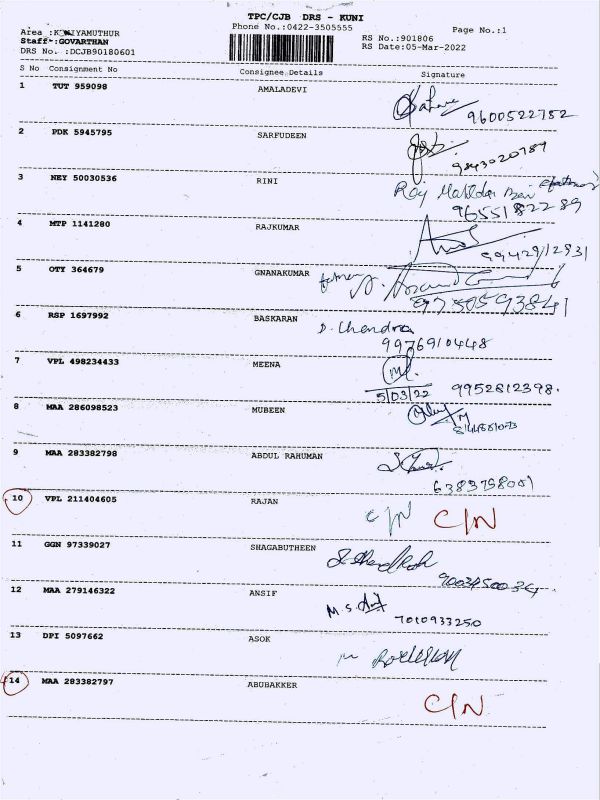 TPC/CJB DRS - KUNI
Phone No.:0422-3505555
Page No.:1
Area :KUNIYAMUTHUR
Staff :GOVARTHAN
RS No.:901806
DRS No. :DCJB90180601
RS Date:05-Mar-2022
S No Consignment No Consignee Details Signature
1 TUT 959098 AMALADEVI
9600522782
2 PDK 5945795 SARFUDEEN
9843020787
3 NEY 50030536 RINI
9655182289
4 MTP 1141280 RAJKUMAR
5 OTY 364679 GNANAKUMAR
9750593841
6 RSP 1697992 BASKARAN D. Chendra
9976910448
7 VPL 498234433 MEENA
5/03/22 9952812398.
8 MAA 286098523 MUBEEN
9 MAA 283382798 ABDUL RAHUMAN
6383798001
10 VPL 211404605 RAJAN C/N C/N
11 GGN 97339027 SHAGABUTHEEN
12 MAA 279146322 ANSIF M.S.
7010933250
13 DPI 5097662 ASOK
14 MAA 283382797 ABUBAKKER C/N